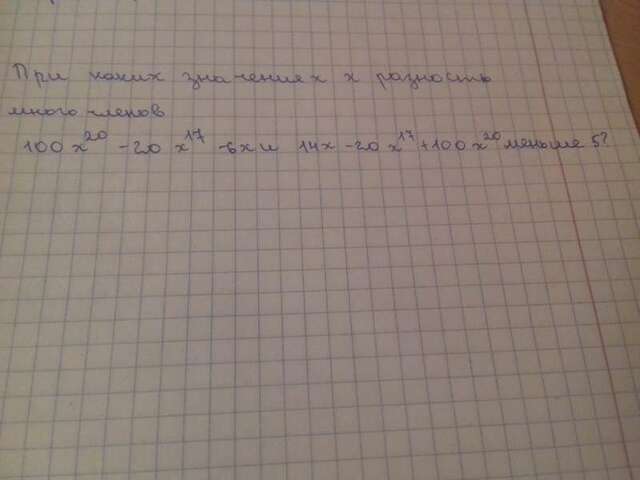 При каких значениях x разность
многочленов
100x²⁰ -20x¹⁷ -6x и 14x -20x¹⁷ +100x²⁰ меньше 5?